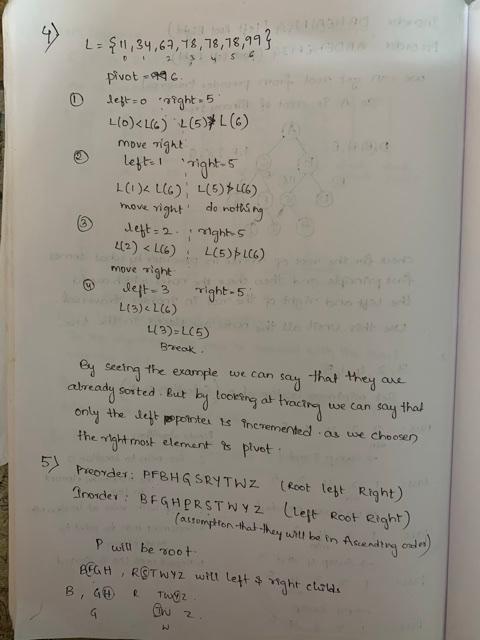 4)
L = {11, 34, 67, 78, 78, 78, 99}
0 1 2 3 4 5 6
pivot = 6.
① left=0 right=5
L(0)<L(6) L(5)≯L(6)
move right
② left=1 right=5
L(1)<L(6) L(5)≯L(6)
move right do nothing
③ left=2 right=5
L(2)<L(6) L(5)≯L(6)
move right
④ left=3 right=5
L(3)<L(6)
L(3)=L(5)
Break.
By seeing the example we can say that they are
already sorted. But by looking at tracing we can say that
only the left pointer is incremented. as we choosen
the rightmost element is pivot.
5)
Preorder: PFBHGSRYTWZ (Root left Right)
Inorder: BFGHPRSTWYZ (Left Root Right)
(assumption that they will be in Ascending order)
P will be root.
BFGH, RSTWYZ will left & right childs
B, GH R TWYZ
G TW Z
W